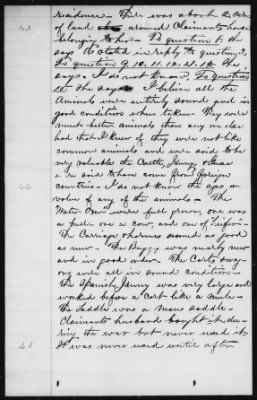 residence - There was about 2 acres
of land around Claimants house
belonging to her. To question 8 she
says as stated in reply to question 7.
To question 9. 10. 11. 12. 13. 14. She
says - I do not know. To question
15 she says - I believe all the
Animals were entirely sound and in
good condition when taken - They were
much better animals than any one else
had that I know of they were not like
common animals and were said to be
very valuable the Cattle, Jenny &
were said to have come from foreign
countries - I do not know the age or
value of any of the animals - The
Water Oxen were full grown, one was
a full one a cow, and one of
The Carriage & harness seemed as good
as new - The Buggy was nearly new
and in good order. The Carts & wag-
ons were all in sound condition -
the Spanish Jenny was very large and
worked before a Cart like a mule -
The Saddle was a mans saddle -
Claimants husband bought it du-
ring the war but never used it
It was never used until after